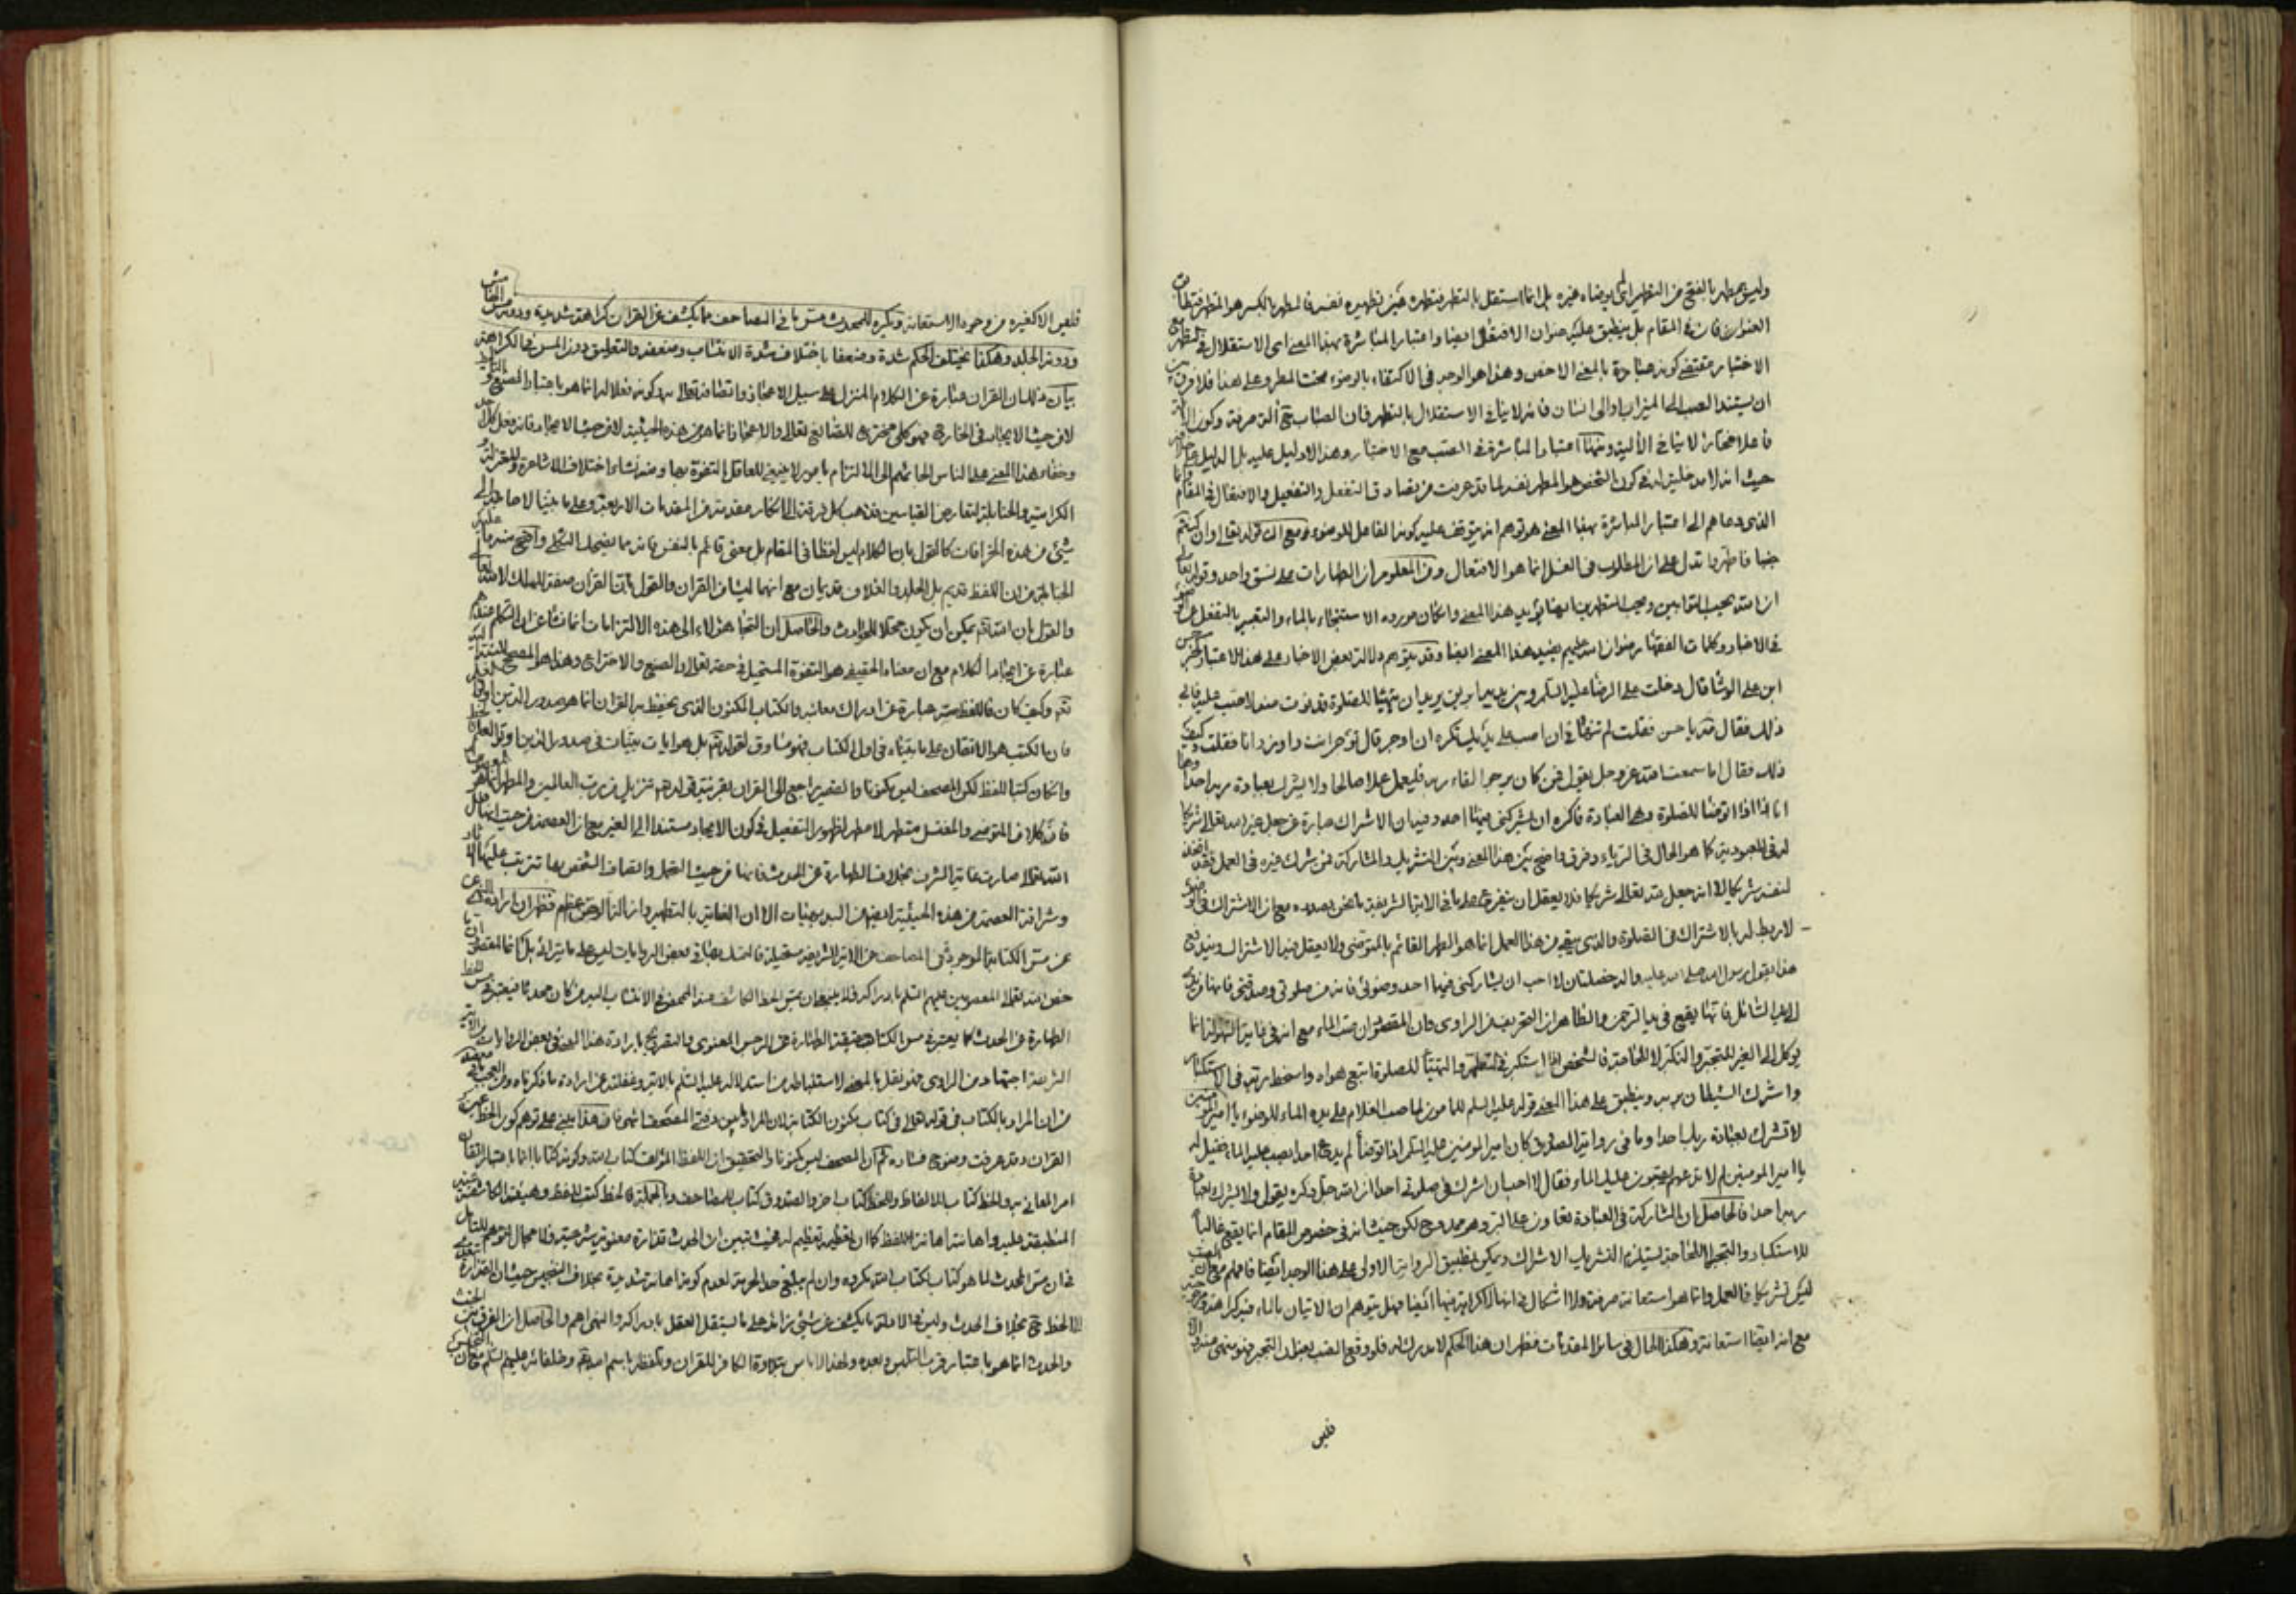 وليس بمطهر بالفتح من التطهر اى بوضاه غيره بل انما استقل بالتطهر فتطهره عين تطهيره نفسه فالمطهر بالكسر هو المتطهر فتطابق
العنوان فان في المقام بل ينطبق عليه عنوان الانفعال ايضا واعتبار المباشرة بهذا المعنى اى الاستقلال في التطهر مع
الاختيار مقتضى كونه عبادة بالمعنى الاخص وهذا هو الوجه في الاكتفاء بالوضوء تحت المطر وعلى هذا فلا فرق بين
ان يستند الصب الى الميزاب او الى انسان فانه لا ينافي الاستقلال بالتطهر فان الصباب ح آلة صرفة وكون الآلة
فاعلا مختارا لا ينافي الآلية ومنها اعتبار المباشرة في الصب مع الاختيار وهذا لا دليل عليه بل الدليل على خلافه
حيث انه لا مدخلية له في كون الشخص هو المطهر نفسه لما قد عرفت من تصادق التفعل والتفعيل والانفعال في المقام وانما
الذى دعاهم الى اعتبار المباشرة بهذا المعنى هو توهم انه يتوقف عليه كونه الفاعل للوضوء مع ان قوله تعالى وان كنتم
جنبا فاطهروا تدل على ان المطلوب في الغسل انما هو الافتعال ومن المعلوم ان الطهارات على نسق واحد وقوله تعالى
ان الله يحب التوابين ويحب المتطهرين ايضا يؤيد هذا المعنى وان كان مورده الاستنجاء بالماء والتعبير بالتفعل عن الوضوء
في الاخبار وكلمات الفقهاء رضوان الله عليهم يفيد هذا المعنى ايضا وقد يتوهم دلالة بعض الاخبار على هذا الاعتبار كخبر حسن
ابن على الوشا قال دخلت على الرضا عليه السلم وبين يديه ابريق يريد ان يتهيأ للصلوة فدنوت منه لاصب عليه فابى
ذلك فقال مه يا حسن فقلت لم تنهاني ان اصب على يديك تكره ان اوجر قال توجر انت واوزر انا فقلت وكيف
ذلك فقال اما سمعت الله عز وجل يقول فمن كان يرجوا لقاء ربه فليعمل عملا صالحا ولا يشرك بعبادة ربه احدا وها
انا ذا اتوضأ للصلوة وهى العبادة فاكره ان يشركني فيها احد وفيه ان الاشراك عبارة عن جعل غير الله تعالى شريكا
له في المعبودية كما هو الحال في الرياء وفرق واضح بين هذا المعنى وبين التشريك والمشاركة فمن شرك غيره في العمل فقد اتخذ
لنفسه شريكا لا انه جعل لله تعالى شريكا فلا يعقل ان يتفرع على ما في الآية الشريفة ما نحن بصدده مع ان الاشتراك في الوضوء
لا ربط له بالاشتراك في الصلوة والذى يبقى من هذا العمل انما هو الطهر القائم بالمتوضى ولا يعقل فيه الاشتراك ويندفع
هذا بقول رسول الله صلى الله عليه وآله خصلتان لا احب ان يشاركني فيهما احد وضوئي فانه من صلوتي وصدقتي فانها من يدى
الى يد السائل فانها تقع في يد الرحمن والظاهر ان التحريف من الراوى وان المقصود ان صب الماء مع انه في غاية السهولة انما
يوكل الى الغير للتجبر والتكبر لا للحاجة فالشخص اذا استكبر في التطهر والتهيأ للصلوة اتبع هواه واسخط ربه في الاستكبار
واشرك الشيطان بربه وينطبق على هذا المعنى قوله عليه السلم للمامون لما صب الغلام على يده الماء للوضوء يا امير المؤمنين
لا تشرك بعبادة ربك احدا وما في رواية الصدوق كان امير المؤمنين عليه السلم اذا توضأ لم يدع احدا يصب عليه الماء فقيل له
يا امير المؤمنين لم لا تدعهم يصبون عليك الماء فقال لا احب ان اشرك في صلوتي احدا ان الله جل ذكره يقول ولا يشرك بعبادة
ربه احدا فالحاصل ان المشاركة في العبادة تعاون على البر وهو ممدوح لكن حيث انه في خصوص المقام انما يقع غالبا
للاستكبار والتجبر لا للحاجة يستلزم التشريك الاشراك ويمكن تطبيق الرواية الاولى على هذا الوجه ايضا فافهم مع ان الصب
ليس تشريكا في العمل وانما هو استعانة صرفة ولا اشكال في انها لا كراهة فيها ايضا فهل يتوهم ان الاتيان بالماء فيه كراهة
مع انه ايضا استعانة وهكذا الحال في سائر المقدمات فظهر ان هذا الحكم لا مدرك له فلو وقع الصب بعنوان التجبر فهو منهى عنه والا
فليس
فليس الا كغيره من وجوه الاستعانة ويكره للمحدث مس ما في المصاحف مما يكشف عن القران كراهة شديدة ودونه مس الهامش
ودونه الجلد وهكذا يختلف الحكم شدة وضعفا باختلاف شدة الانتساب وضعفه والتعليق دون المس في الكراهة
بيان ذلك ان القران عبارة عن الكلام المنزل على سبيل الاعجاز واتصافه تعالى به وكونه فعلا له انما هو باعتبار الصنع و
لا من حيث الايجاد في الخارج فهو كلى مخترع للصانع تعالى والاعجاز انما هو من هذه الحيثية لا من حيث الايجاد فانه فعل كل احد
وخفاء هذا المعنى على الناس الجائهم الى الالتزام بامور لا ينبغي للعاقل التفوه بها ومنه نشاء اختلاف الاشاعرة والمعتزلة و
الكرامية والحنابلة لتعارض القياسين فذهب كل فرقة الى انكار مقدمة من المقدمات الاربعة وعلى ما بينا لا حاجة الى
شئ من هذه الخرافات كالقول بان الكلام ليس لفظا في المقام بل معنى قائم بالنفس فانه مما يضحك الثكلى واقبح منه ما عليه
الحنابلة من ان اللفظ قديم بل الجلد والغلاف قديمان مع انهما ليسا من القران والقول بان القران صفة للملك لا لله تعالى
والقول بان الله تم يمكن ان يكون محلا للحوادث والحاصل ان التجاء هؤلاء الى هذه الالتزامات انما نشاء من ان التكلم عندهم
عبارة عن ايجاد الكلام مع ان معناه الحقيقى هو التفوه المستحيل في حقه تعالى والصنع والاختراع وهذا هو المصحح للنسبة اليه
تم وكيف كان فاللفظ عبارة عن ادراك معانيه والكتاب المكنون الذى يحفظ به القران انما هو صدور الذين اوتوا العلم
فان الكتب هو الاتقان على ما بيناه في اول الكتاب فهو مساوق لقوله تم بل هو ايات بينات في صدور الذين اوتوا العلم
وان كان كتبا للفظ لكن المصحف ليس مكنونا والضمير راجع الى القران بقرينة قوله تم تنزيل من رب العالمين والمطهر انما هو
فان كلا من المتوضى والمغتسل متطهر لا مطهر لظهور التفعيل في كون الايجاد مستندا الى الغير مع ان العصمة من حيث انها فعل
الله تعالى صارت غاية الشرف بخلاف الطهارة عن الحدث فانها من حيث الفعل واتصاف الشخص بها تترتب عليها الاثار
وشرافة العصمة من هذه الحيثية ايضا من البديهيات الا ان العناية بالتطهير وازالة الرجس اعظم فظهر ان ارادة النهى عن
عن مس الكتابة الموجودة في المصاحف من الاية الشريفة مستحيلة فالتمسك بها في بعض الروايات ليس على ما يتراأى بل كما ان المقصود
خص الله تعالى المعصومين عليهم السلم بادراكه فلا ينبغي ان يمس الخط الكاشف عنه المحض في الانتساب اليه من كان محدثا فيعتبر في مس اللفظ
الطهارة عن الحدث كما يعتبر في مس الكتاب حقيقة الطهارة عن الرجس المعنوى والتصريح بارادة هذا المعنى في بعض الروايات من الاية
الشريفة اجتهاد من الراوى فهو نقل بالمعنى لاستنباطه من استدلاله عليه السلم بالاية وغفلته عن ارادة ما ذكرناه ومن العجب ما في
من ان المراد بالكتاب في قوله تعالى في كتاب مكنون الكتابة لان المراد ما بين دفتى المصحف انتهى فان هذا مبنى على توهم كون الخط عين
القران وقد عرفت وضوح فساده ثم ان المصحف ليس مكنونا والتحقيق ان اللفظ المؤلف كتاب لله وكونه كتابا انما باعتبار اتقان
امر المعاني به والخط كتاب للالفاظ وللخط كتاب اخر والصندوق كتاب للمصاحف وبالجملة فالخط كتب اللفظ وهيئة الكاشفة
المنطبقة عليه واهانته اهانة اللفظ كما ان تعظيمه تعظيم له فحيث تبين ان الحدث قذارة معنوية شرعية فلا مجال لتوهم
فان مس المحدث لما هو كتاب لكتاب الله مكروه وان لم يبلغ حد الحرمة لعدم كونه اهانة شديدة بخلاف التنجيس حيث ان القذارة
الخط ح بخلاف الحدث وليس في الادلة ما يكشف عن شئ زائد على ما يستقل العقل بادراكه والنهى اهم والحاصل ان الفرق بين الخبث
والحدث انما هو باعتبار قرب التلبس وبعده ولهذا لا باس بتلاوة الكافر للقران وتلفظه باسم الله تم وخلفائه عليهم السلم مع ان